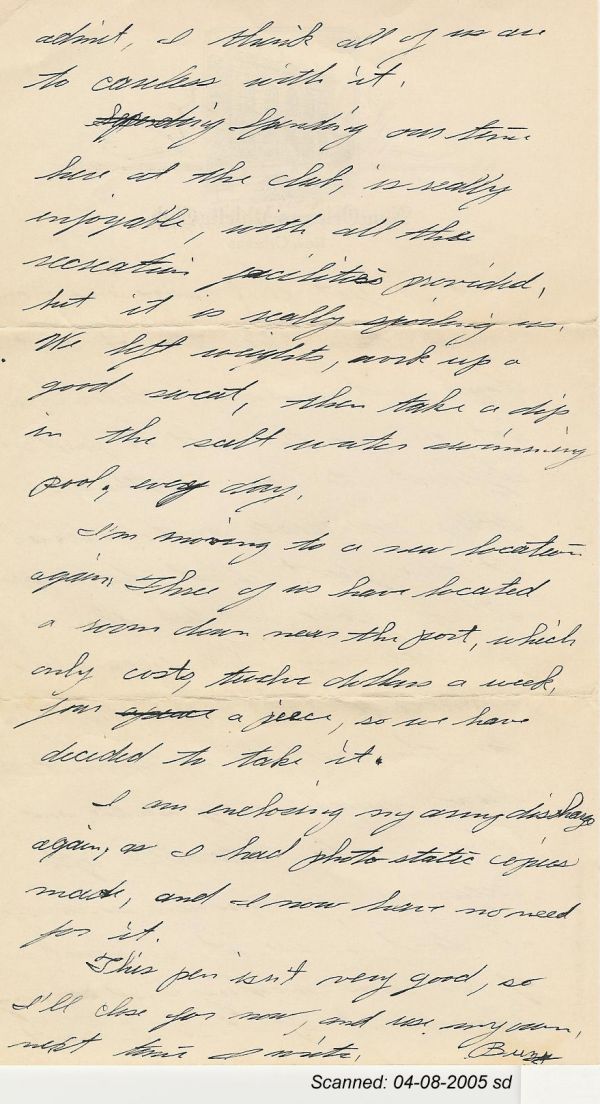 admit, I think all of us are
to careless with it.
Spending Spending our time
here at the club, is really
enjoyable, with all the
recreation facilities provided,
but it is really spoiling us.
We lift weights, work up a
good sweat, then take a dip
in the salt water swimming
pool, every day.
I'm moving to a new location
again. Three of us have located
a room down near the port, which
only costs, twelve dollars a week,
four apeace a piece, so we have
decided to take it.
I am enclosing my army discharge
again, as I had photo static copies
made, and I now have no need
for it.
This pen isn't very good, so
I'll close for now, and use my own,
next time I write.
Scanned: 04-08-2005 sd